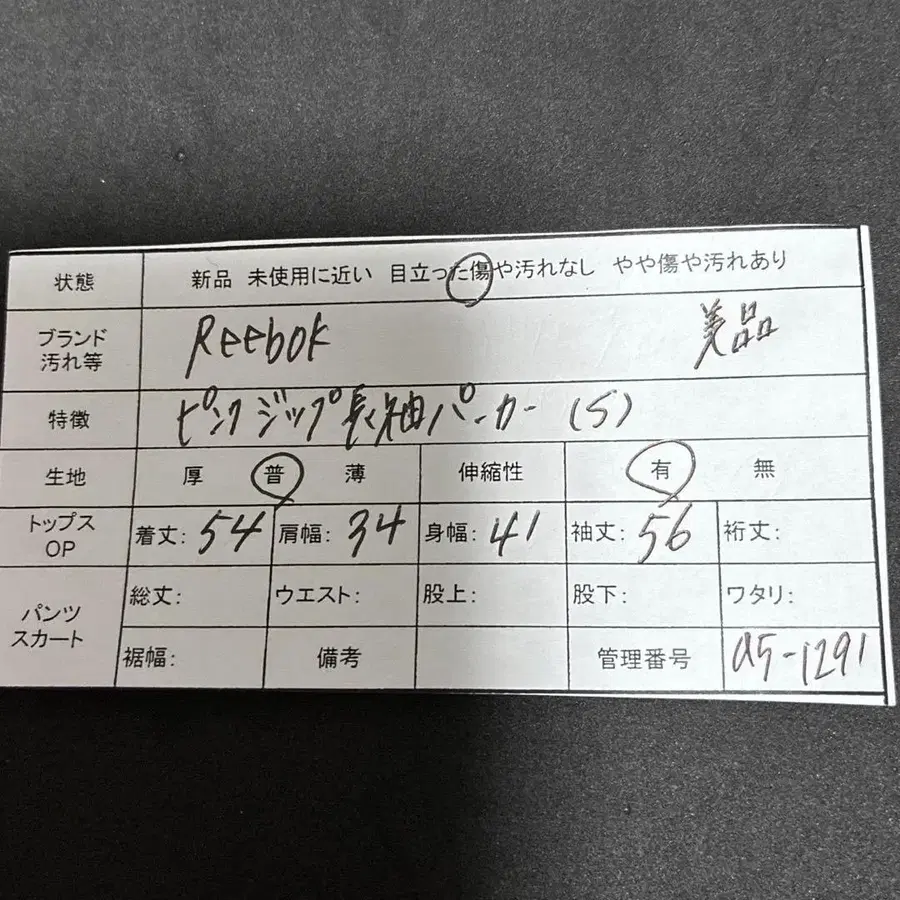 状態 新品 未使用に近い 目立った傷や汚れなし やや傷や汚れあり
ブランド
汚れ等 Reebok 美品
特徴 ピンクジップ長袖パーカー (S)
生地 厚 普 薄 伸縮性 有 無
トップス
OP 着丈: 54 肩幅: 34 身幅: 41 袖丈: 56 裄丈:
パンツ
スカート 総丈: ウエスト: 股上: 股下: ワタリ:
裾幅: 備考 管理番号 a5-1291